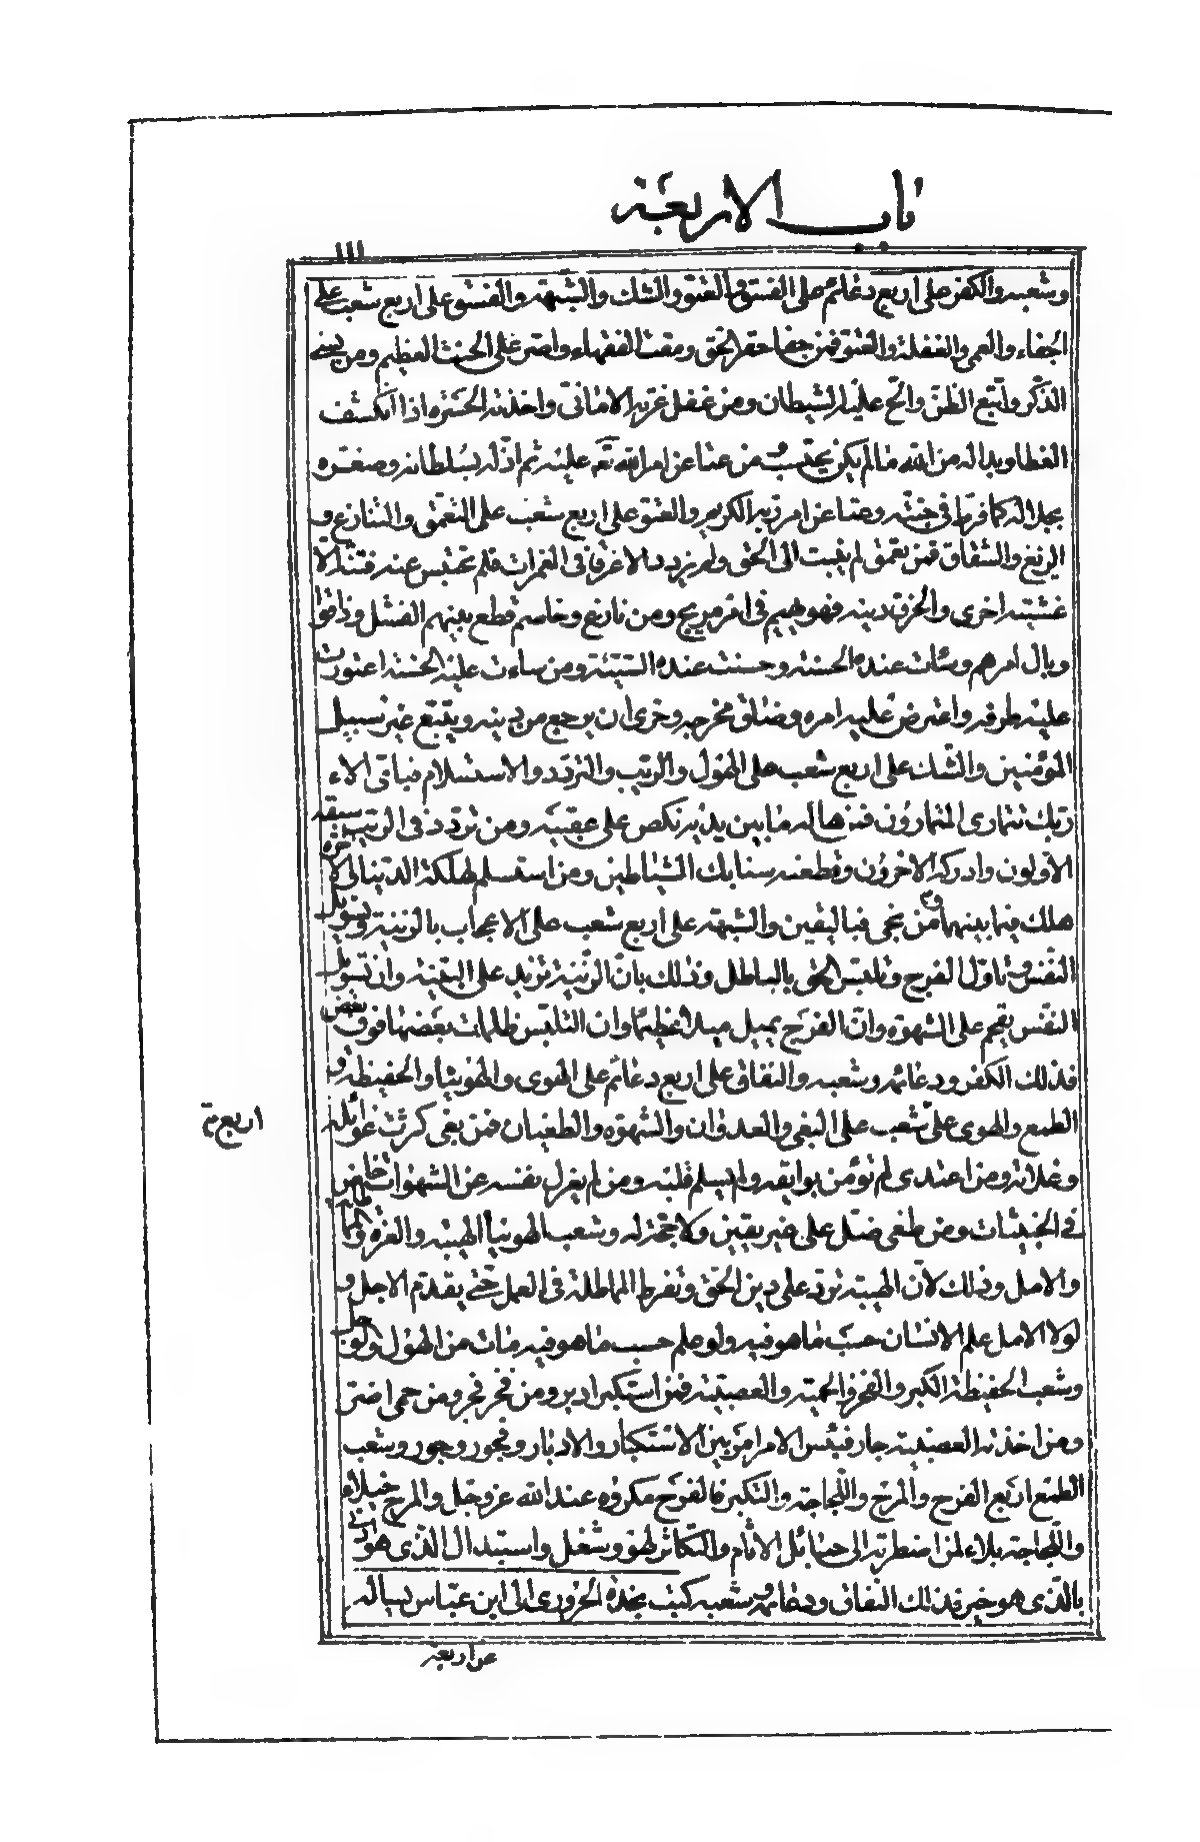 باب الاربعة
١١١
وشعبه والكفر على اربع دعائم على الفسق والعتو والشك والشبهة والفسق على اربع شعب على
الجفاء والعمى والغفلة والعتو فمن جفا حقر الحق ومقت الفقهاء واصر على الحنث العظيم ومن نسى
الذكر واتبع الظن والح عليه الشيطان ومن غفل غرته الامانى واخذته الحسرة اذا انكشف
الغطا وبدا له من الله ما لم يكن يحتسب ومن عتا عن امر الله تعه عليه ثم اذله بسلطانه وصغره
بجلاله كما فرط فى جنبه وعتا عن امر ربه الكريم والعتو على اربع شعب على التعمق والتنازع و
الزيغ والشقاق فمن تعمق لم ينب الى الحق ولم يزدد الا غرقا فى الغمرات فلم تحتبس عنه فتنة الا
غشيته اخرى وانخرق دينه فهو يهيم فى امر مريج ومن نازع وخاصم قطع بينهم الفشل وذاقوا
وبال امرهم وساءت عنده الحسنة وحسنت عنده السيئة ومن ساءت عليه الحسنة اعتورت
عليه طرقه واعترض عليه امره وضاق مخرجه وحرى ان يرجع من دينه ويتبع غير سبيل
المؤمنين والشك على اربع شعب على الهول والريب والتردد والاستسلام فباى الاء
ربك تتمارى المتمارون فمن هاله ما بين يديه نكص على عقبيه ومن تردد فى الريب سبقه
الاولون وادركه الاخرون وقطعته سنابك الشياطين ومن استسلم لهلكة الدنيا والاخرة
هلك فيما بينهما ومن نجى فباليقين والشبهة على اربع شعب على الاعجاب بالزينة وتسويل
النفس وتاول الفرج وتلبس الحق بالباطل وذلك بان الزينة تزيد على البينة وان تسويل
النفس يقحم على الشهوة وان الفرج يميل ميلا عظيما وان التلبس ظلمات بعضها فوق بعض
فذلك الكفر ودعائمه وشعبه والنفاق على اربع دعائم على الهوى والهوينا والحفيظة و
الطمع والهوى على شعب على البغى والعدوان والشهوة والطغيان فمن بغى كثرت غوائله
اربع نم
وغلاته ومن اعتدى لم تؤمن بوايقه ولم يسلم قلبه ومن لم يعزل نفسه عن الشهوات خاض
فى الخبيثات ومن طغى ضل على غير يقين ولا حجة له وشعب الهوينا الهيبة والغرة والمماطلة
والامل وذلك لان الهيبة ترد على دين الحق وتفرط المماطلة فى العمل حتى يقدم الاجل و
لولا الامل علم الانسان حسب ما هو فيه ولو علم حسب ما هو فيه مات من الهول والوجل
وشعب الحفيظة الكبر والفخر والحمية والعصبية فمن استكبر ادبر ومن فخر فجر ومن حمى اضر
ومن اخذته العصبية جار فبئس الامر امر بين الاستكبار والادبار وفجور وجور وشعب
الطمع اربع الفرح والمرح واللجاجة والتكبر فالفرح مكروه عند الله عز وجل والمرح خيلاء
واللجاجة بلاء لمن اضطرته الى حبائل الاثام والتكاثر لهو وشغل واستبدال الذى هو ادنى
بالذى هو خير فذلك النفاق ودعائمه وشعبه كتب نجدة الحرورى الى ابن عباس يساله
عن اربعة